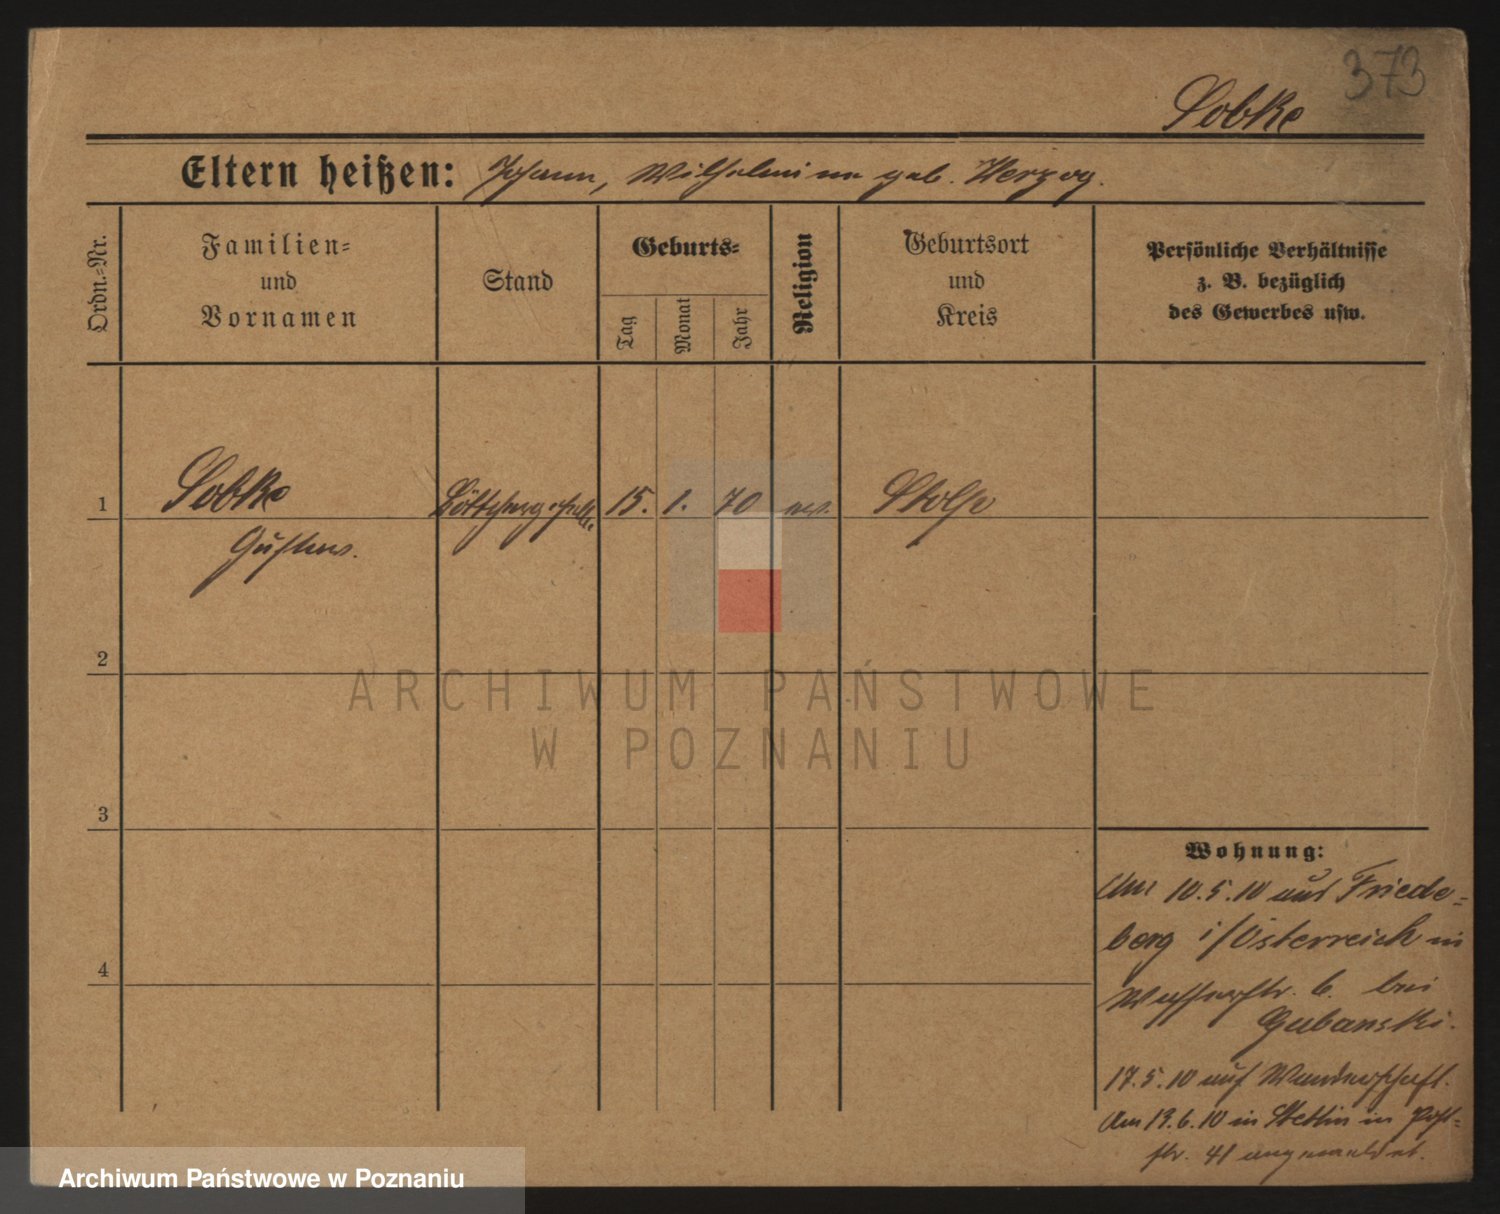 373
Sobke
Eltern heißen: Johann, Wilhelmine geb. Herzog.
Ordn.-Nr.
Familien-
und
Vornamen
Stand
Geburts-
Tag
Monat
Jahr
Religion
Geburtsort
und
Kreis
Persönliche Verhältnisse
z. B. bezüglich
des Gewerbes usw.
1
Sobke
Gustav.
Böttchergeselle
15. 1. 70
Stolp
2
3
4
ARCHIWUM PAŃSTWOWE
W POZNANIU
Wohnung:
Am 10.5.10 aus Friede-
berg i/Österreich in
Wasserstr. 6. bei
Gubanski.
17.5.10 auf Wanderschaft.
Am 13.6.10 in Stettin in
str. 41 angemeldet.
Archiwum Państwowe w Poznaniu